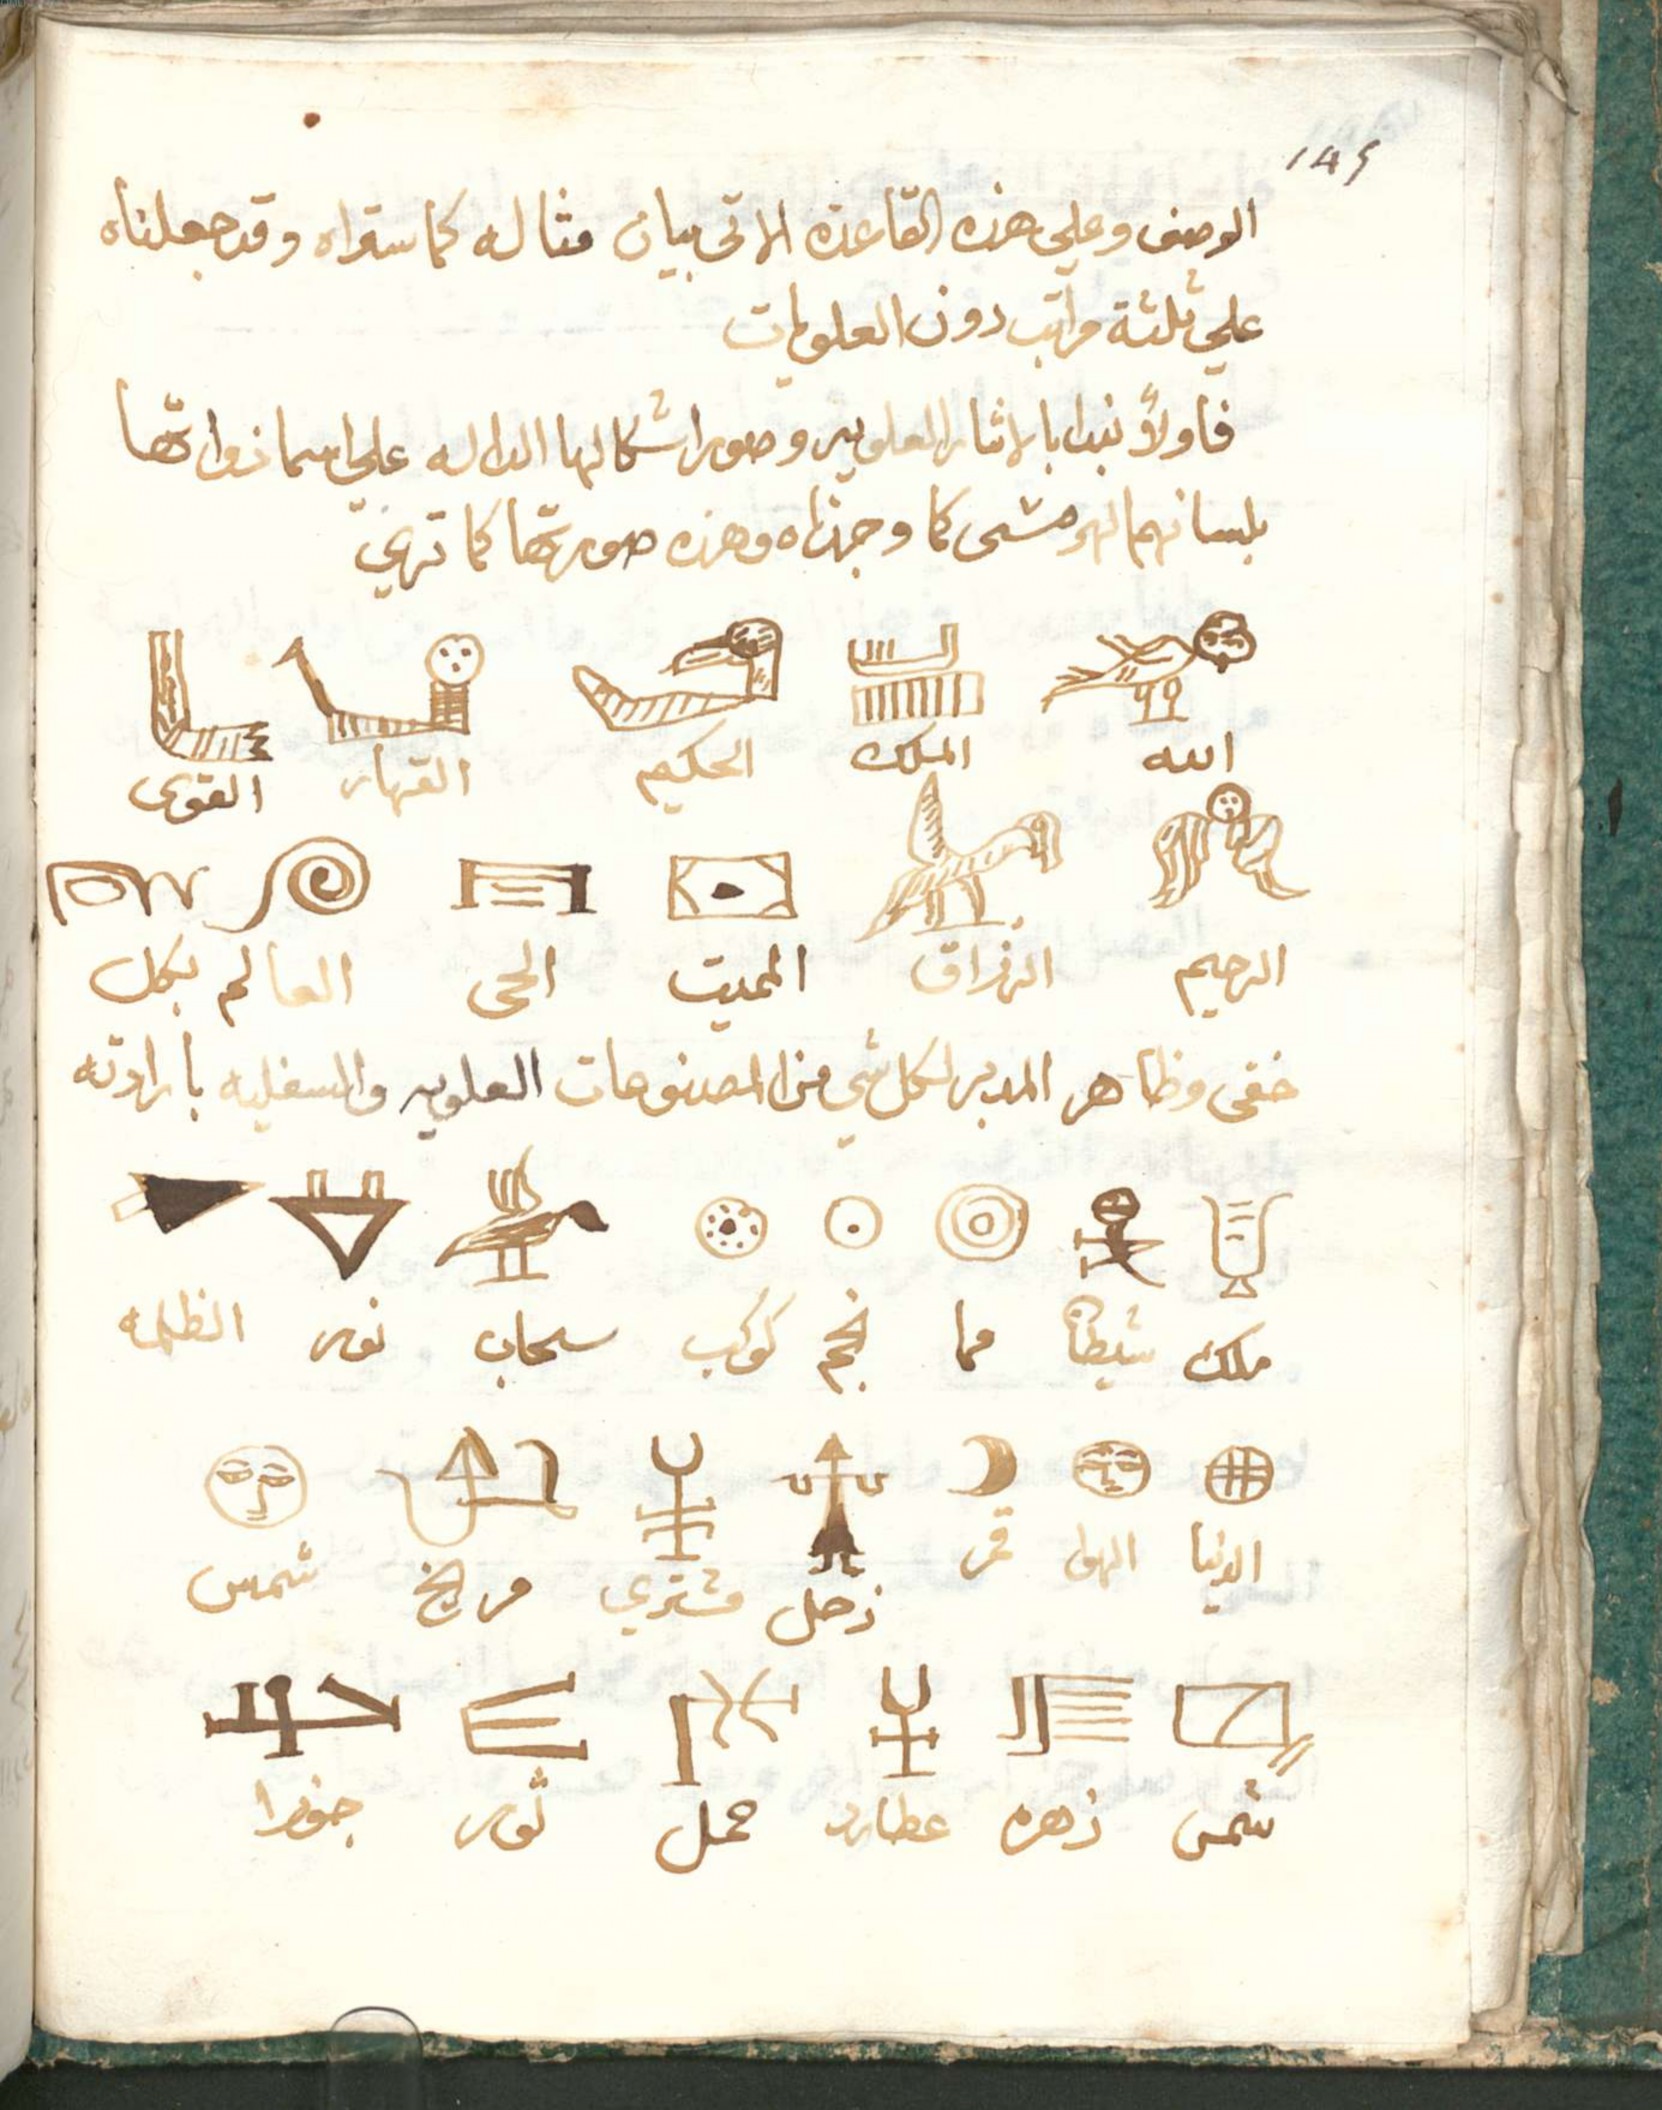 ١٤٩
الوصف وعلى هذه القاعدة الاتى بيان مثاله كما ستراه وقد جعلناه
علي ثلثة مراتب دون العلويات
فاولاً نبدا بالاثار العلويه وصور اشكالها الداله علي اسما ذواتها
بلسانهم الهرمشى كما وجدناه وهذه صورتها كما تري
الله الملك الحكيم القهار القوى
الرحيم الرزاق المميت الحى العالم بكل
خفى وظاهر المدبر لكل شي من المصنوعات العلويه والسفليه بارادته
ملك شيطان سما نجم كوكب سحاب نور الظلمه
الدنيا الهوا قمر زحل مشتري مريخ شمس
شمس زهره عطارد حمل ثور جوزا